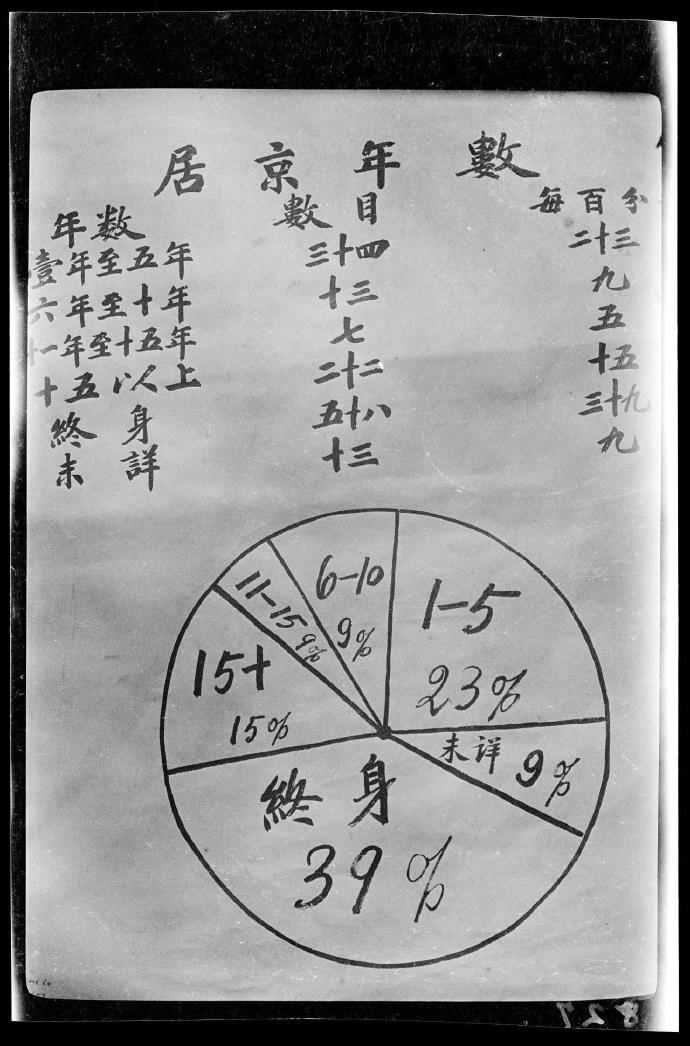 居京年數
年数 數目 每百分
壹年至五年 三十四 二十三
六年至十年 十三 九
十一年至十五年 七 五
十五以上 二十二 十五
終身 五十八 三十九
未詳 十三 九
6-10
9%
1-5
23%
11-15
15+
15%
未詳 9%
終身
39%
827